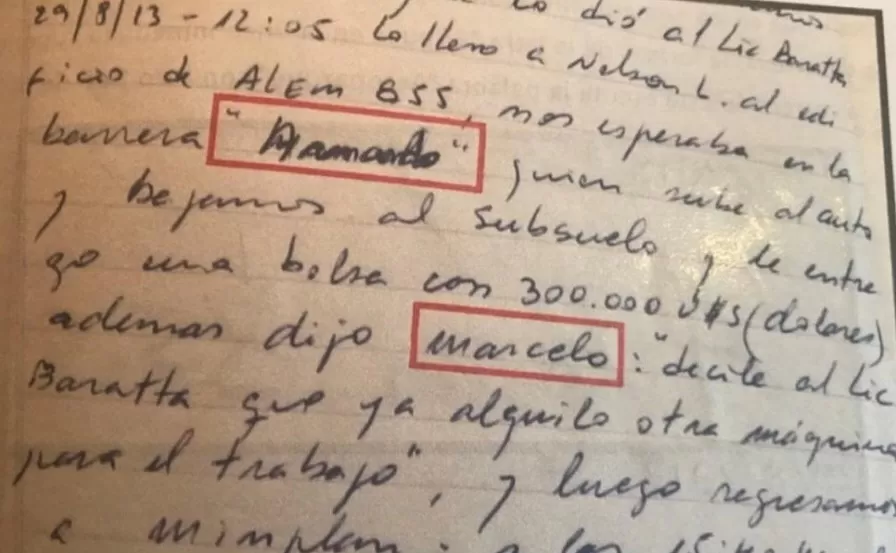 lo dió al Lic Baratta
29/8/13 - 12:05 Lo llevo a Nelson L. al edi
ficio de ALEM 855, nos esperaba en la
barrera "Armando" quien sube al auto
y bajamos al subsuelo y le entre
go una bolsa con 300.000 U$S (dolares)
ademas dijo Marcelo: "decile al Lic
Baratta que ya alquilo otra máquina
para el trabajo", y luego regresamos
a minplan